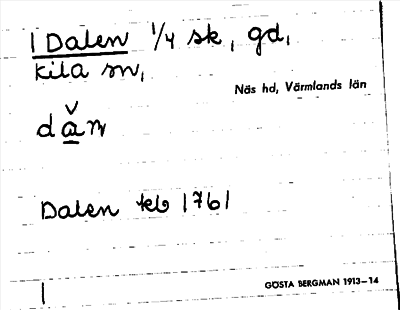 1 Dalen 1/4 sk, gd,
Kila sn,
Näs hd, Värmlands län
dǎn
Dalen kb 1761
GÖSTA BERGMAN 1913–14